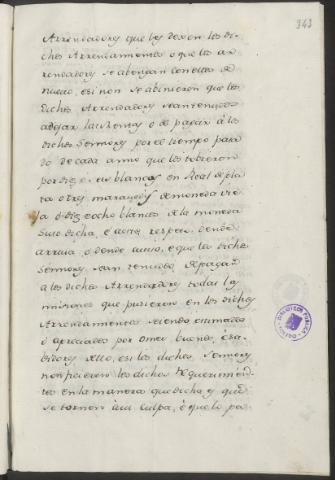 343
Arrendadores que les dexen los di-
chos Arrendamientos o que los ar-
rendadores se abengan con ellos de
nuevo, e si non se abinieren que los
dichos Arrendadores sean tenudos
a dejar las Rentas o de pagar à los
dichos Señores por el tiempo pasa
do de cada anno que los tobieron
por diez e seis blancas en Real de pla
ta o tres maravedis de moneda vie
ja o diez e ocho blancas de la moneda
suso dicha, é a este respeto, dende
arriva, o dende ayuso, e que los dichos
Señores sean tenudos de pagar
a los dichos Arrendadores todas las
misiones que pusieron en los dichos
Arrendamientos seiendo estimados
é apreciados por omes buenos é sa-
bidores dello, e si los dichos Señores
non ficieren los dichos Requerimien-
tos en la manera que dicha es que
se tornen à su culpa, é que lo pa
BIBLIOTECA PUBLICA